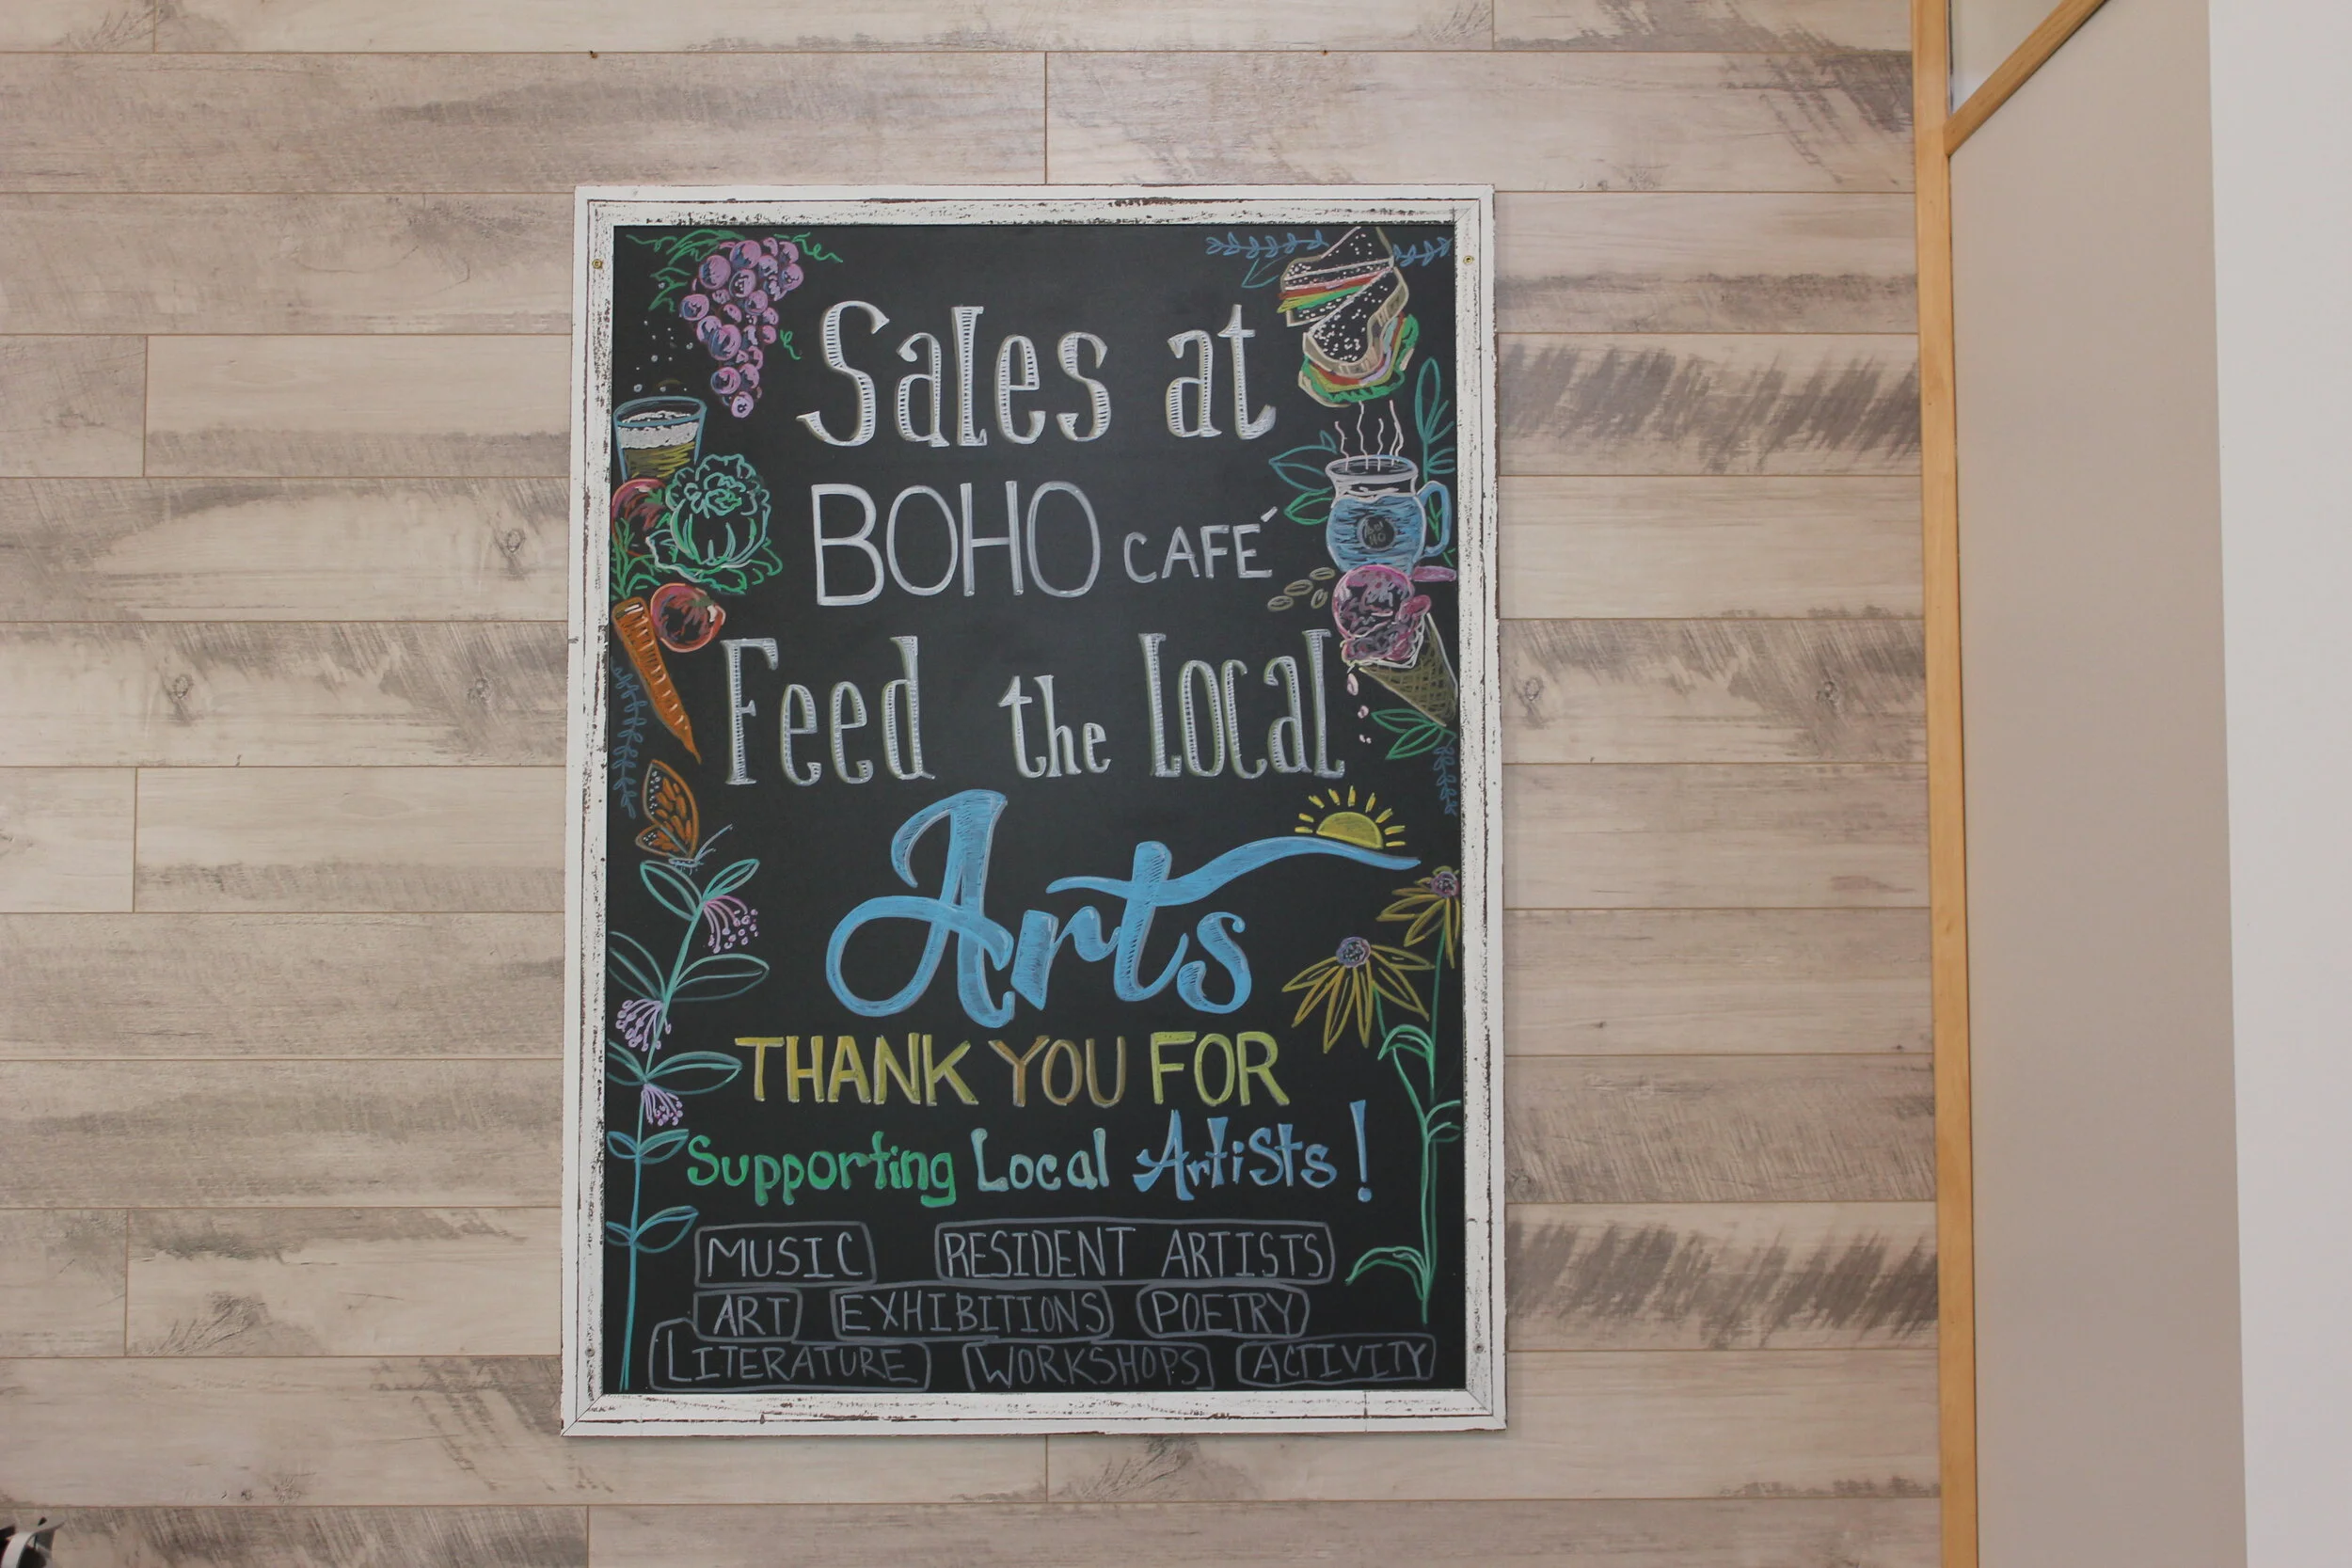 Sales at
BOHO CAFÉ
Feed the Local
Arts
THANK YOU FOR
Supporting Local Artists!
MUSIC RESIDENT ARTISTS
ART EXHIBITIONS POETRY
LITERATURE WORKSHOPS ACTIVITY